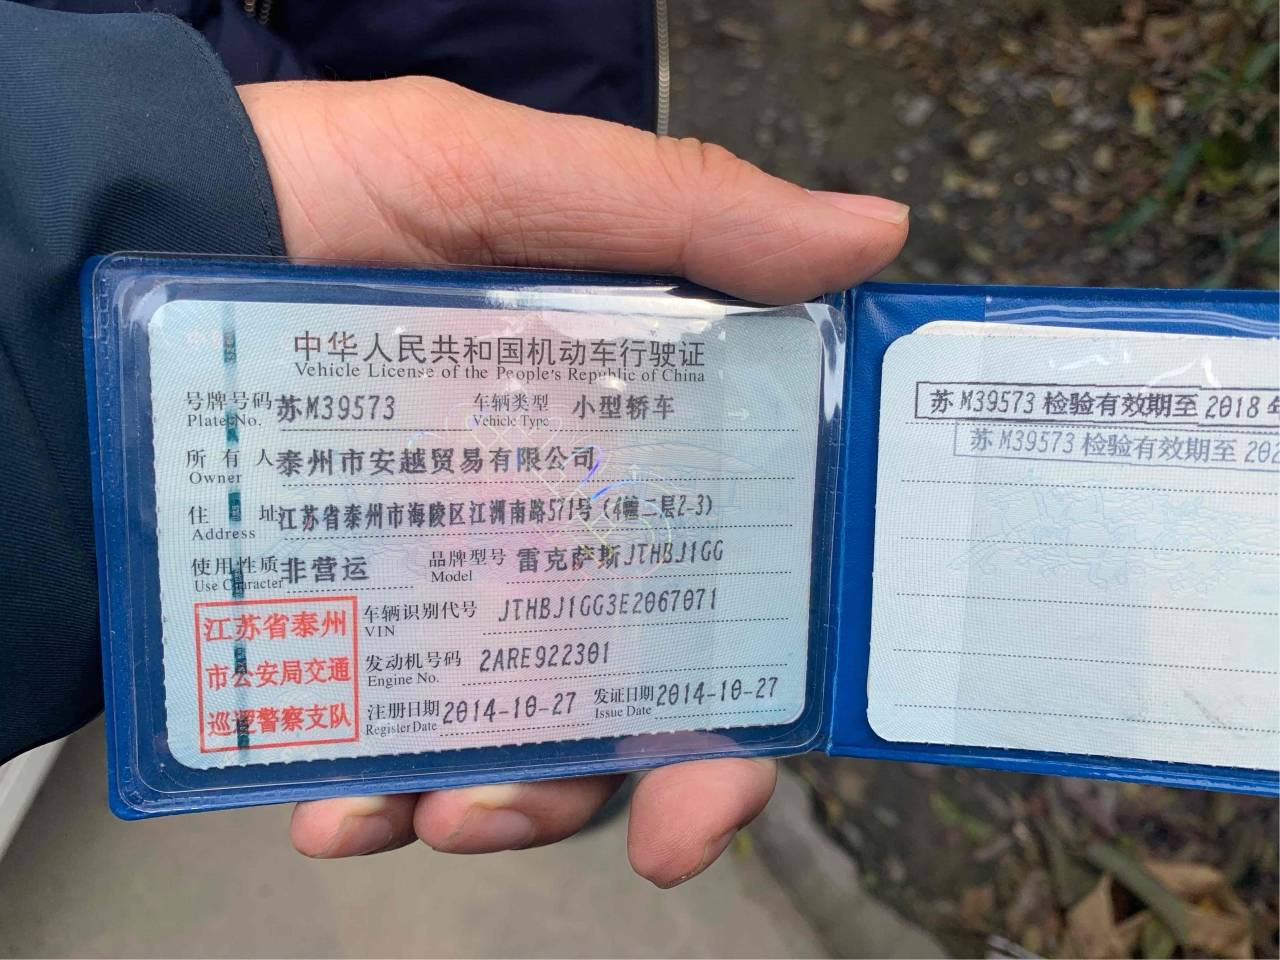 中华人民共和国机动车行驶证
Vehicle License of the People's Republic of China
号牌号码 苏M39573 车辆类型 小型轿车
Plate No. Vehicle Type
所有人 泰州市安越贸易有限公司
Owner
住址 江苏省泰州市海陵区江洲南路571号(4幢二层2-3)
Address
使用性质 非营运 品牌型号 雷克萨斯JTHBJ1GG
Use Character Model
江苏省泰州
市公安局交通
巡逻警察支队
车辆识别代号 JTHBJ1GG3E2067071
VIN
发动机号码 2ARE922301
Engine No.
注册日期 2014-10-27 发证日期 2014-10-27
Register Date Issue Date
苏M39573 检验有效期至 2018年
苏M39573 检验有效期至 202